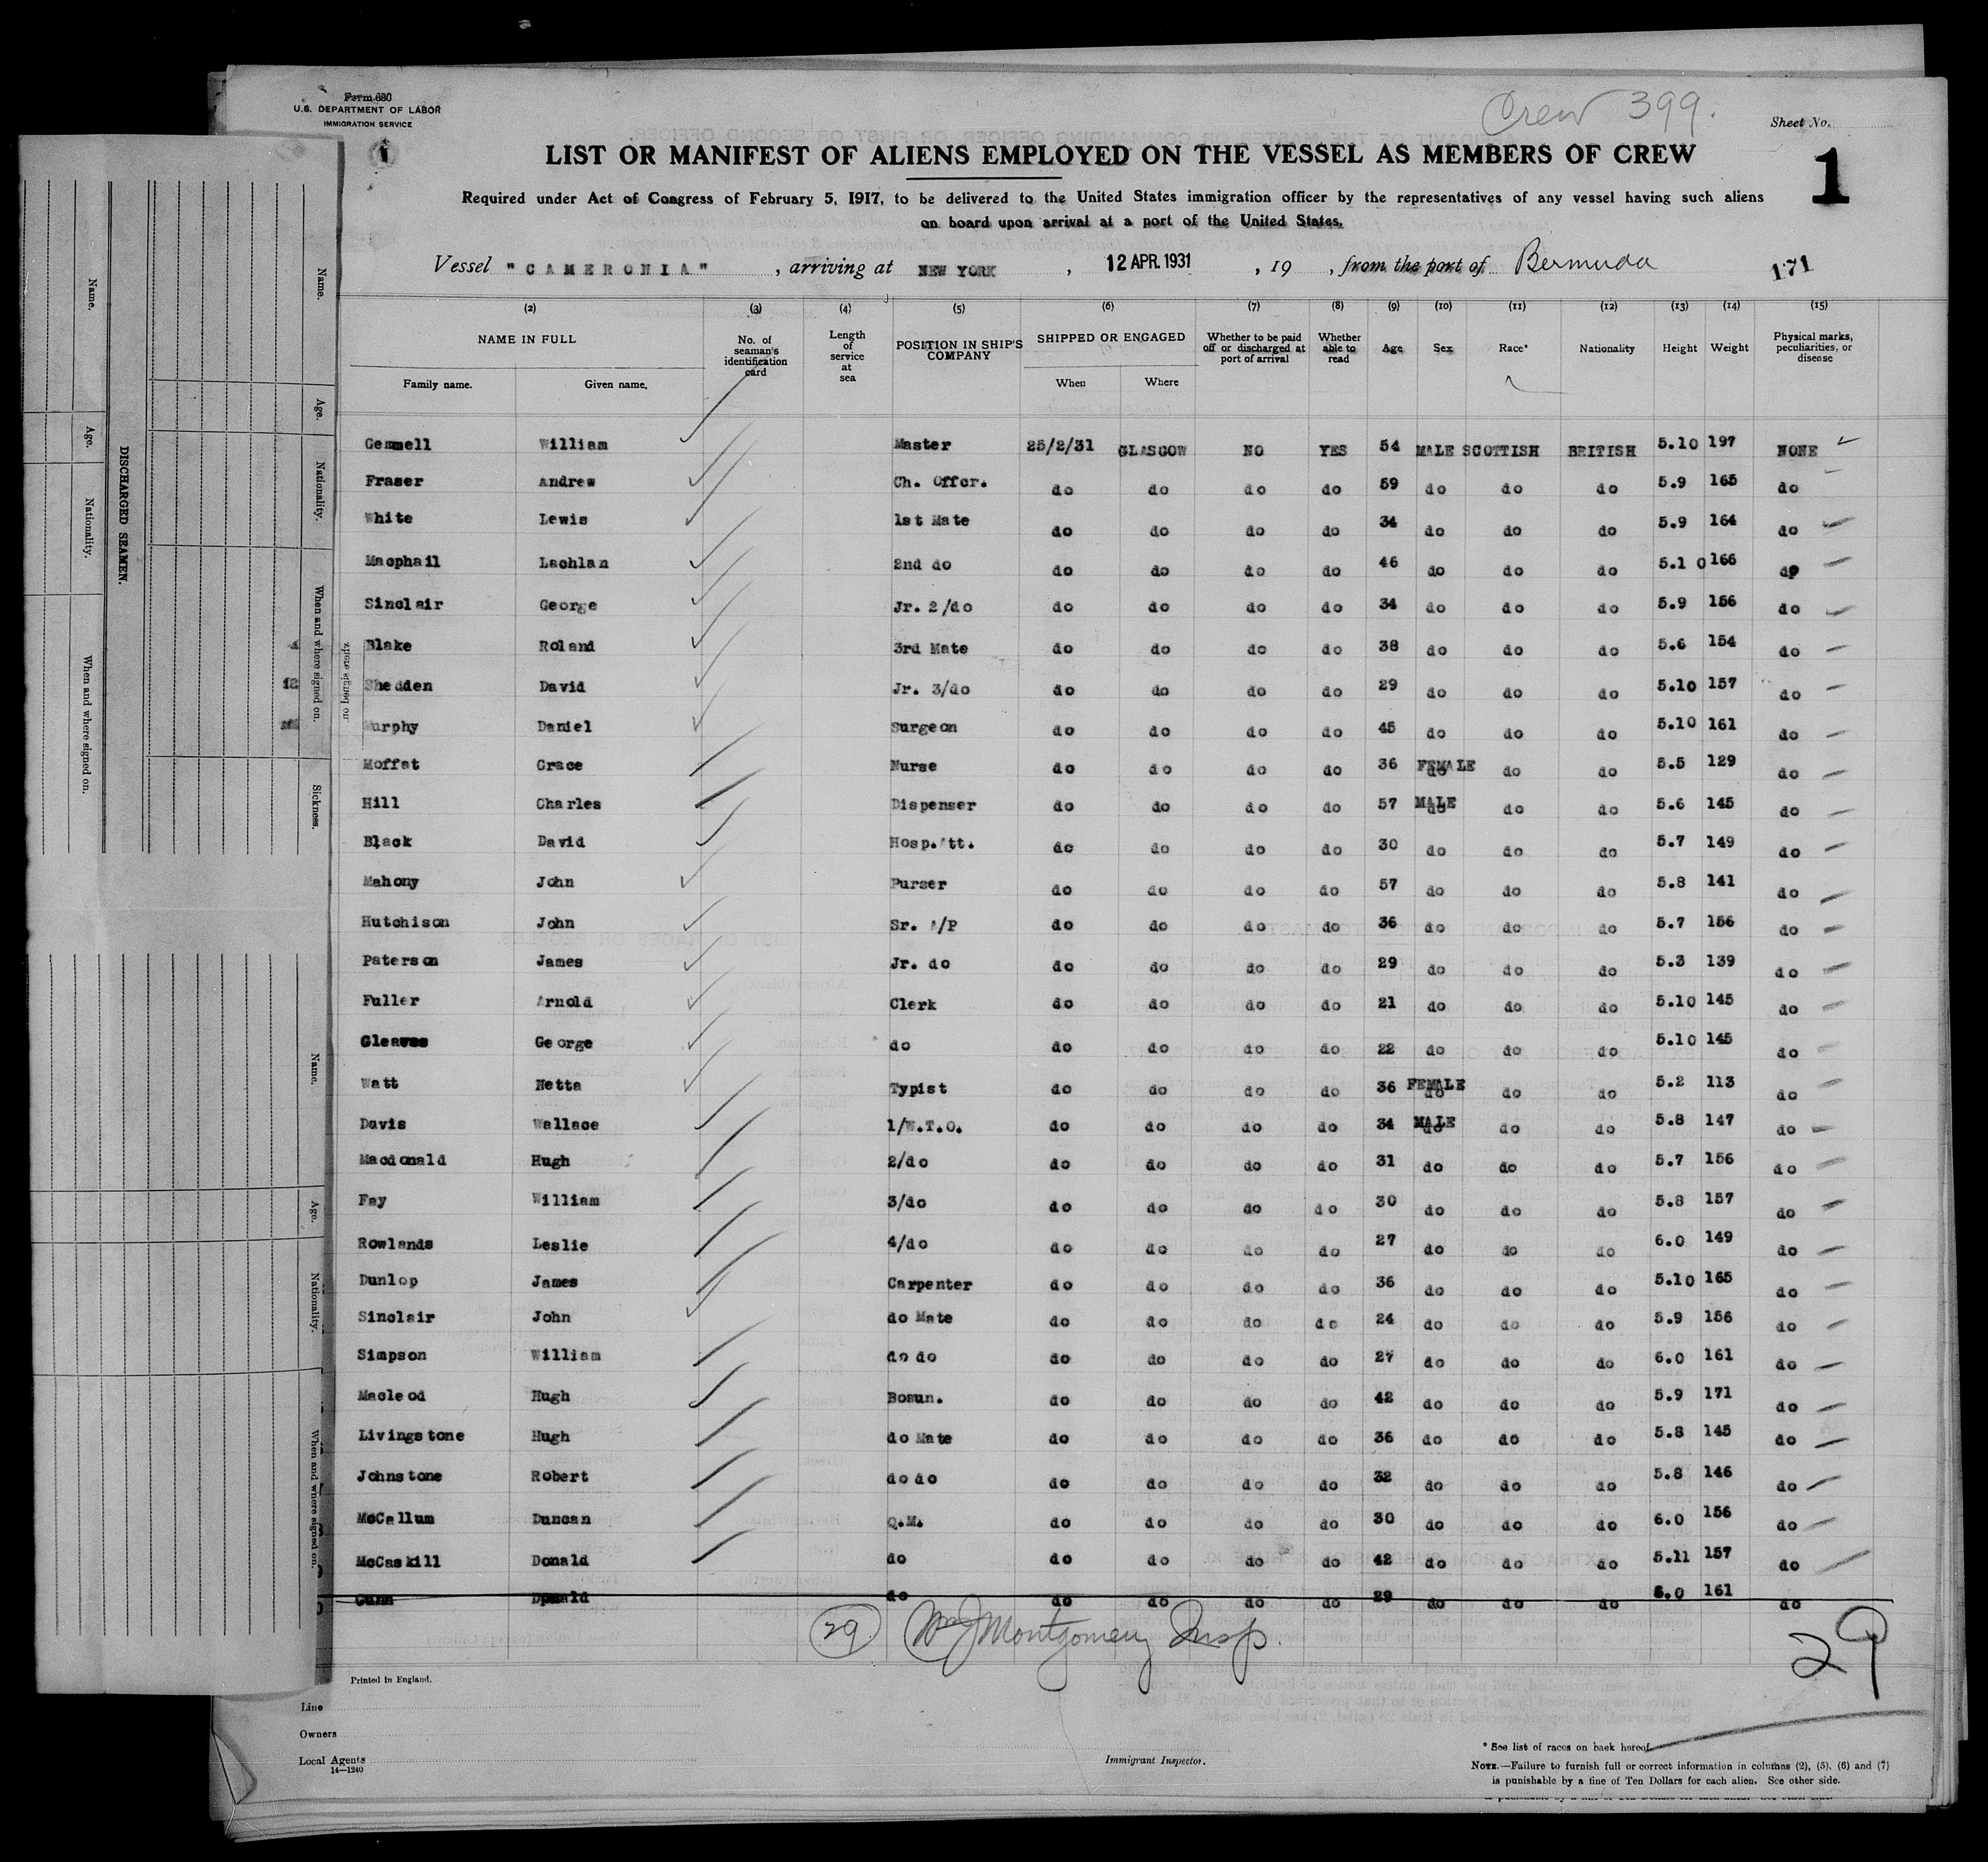 Form 680
U.S. DEPARTMENT OF LABOR
IMMIGRATION SERVICE
Crew 399.
Sheet No.
1
LIST OR MANIFEST OF ALIENS EMPLOYED ON THE VESSEL AS MEMBERS OF CREW
Required under Act of Congress of February 5, 1917, to be delivered to the United States immigration officer by the representatives of any vessel having such aliens
on board upon arrival at a port of the United States.
Vessel "CAMERONIA", arriving at NEW YORK, 12 APR. 1931, 19 , from the port of Bermuda
171
(2) (3) (4) (5) (6) (7) (8) (9) (10) (11) (12) (13) (14) (15)
NAME IN FULL No. of seaman's identification card Length of service at sea POSITION IN SHIP'S COMPANY SHIPPED OR ENGAGED Whether to be paid off or discharged at port of arrival Whether able to read Age Sex Race* Nationality Height Weight Physical marks, peculiarities, or disease
Family name. Given name. When Where
Gemmell William Master 25/2/31 GLASGOW NO YES 54 MALE SCOTTISH BRITISH 5.10 197 NONE
Fraser Andrew Ch. Offcr. do do do do 59 do do do 5.9 165 do
White Lewis 1st Mate do do do do 34 do do do 5.9 164 do
Macphail Lachlan 2nd do do do do do 46 do do do 5.10 166 do
Sinclair George Jr. 2/do do do do do 34 do do do 5.9 156 do
Blake Roland 3rd Mate do do do do 38 do do do 5.6 154 do
Shedden David Jr. 3/do do do do do 29 do do do 5.10 157 do
Murphy Daniel Surgeon do do do do 45 do do do 5.10 161 do
Moffat Grace Nurse do do do do 36 FEMALE do do 5.5 129 do
Hill Charles Dispenser do do do do 57 MALE do do 5.6 145 do
Black David Hosp.Att. do do do do 30 do do do 5.7 149 do
Mahony John Purser do do do do 57 do do do 5.8 141 do
Hutchison John Sr. A/P do do do do 36 do do do 5.7 156 do
Paterson James Jr. do do do do do 29 do do do 5.3 139 do
Fuller Arnold Clerk do do do do 21 do do do 5.10 145 do
Gleaves George do do do do do 22 do do do 5.10 145 do
Watt Netta Typist do do do do 36 FEMALE do do 5.2 113 do
Davis Wallace 1/W.T.O. do do do do 34 MALE do do 5.8 147 do
Macdonald Hugh 2/do do do do do 31 do do do 5.7 156 do
Fay William 3/do do do do do 30 do do do 5.8 157 do
Rowlands Leslie 4/do do do do do 27 do do do 6.0 149 do
Dunlop James Carpenter do do do do 36 do do do 5.10 165 do
Sinclair John do Mate do do do do 24 do do do 5.9 156 do
Simpson William do do do do do do 27 do do do 6.0 161 do
Macleod Hugh Bosun. do do do do 42 do do do 5.9 171 do
Livingstone Hugh do Mate do do do do 36 do do do 5.8 145 do
Johnstone Robert do do do do do do 32 do do do 5.8 146 do
McCallum Duncan Q.M. do do do do 30 do do do 6.0 156 do
McCaskill Donald do do do do do 42 do do do 5.11 157 do
Gunn Donald do do do do do 29 do do do 6.0 161 do
29 Wm J Montgomery Insp.
29
Printed in England.
Line
Owners
Local Agents
14—1240
Immigrant Inspector.
* See list of races on back hereof.
NOTE.—Failure to furnish full or correct information in columns (2), (5), (6) and (7)
is punishable by a fine of Ten Dollars for each alien. See other side.
DISCHARGED SEAMEN.
Name.
Age.
Nationality.
When and where signed on.
Name.
Age.
Nationality.
When and where signed on.
Sickness.
Name.
Age.
Nationality.
When and where signed on.